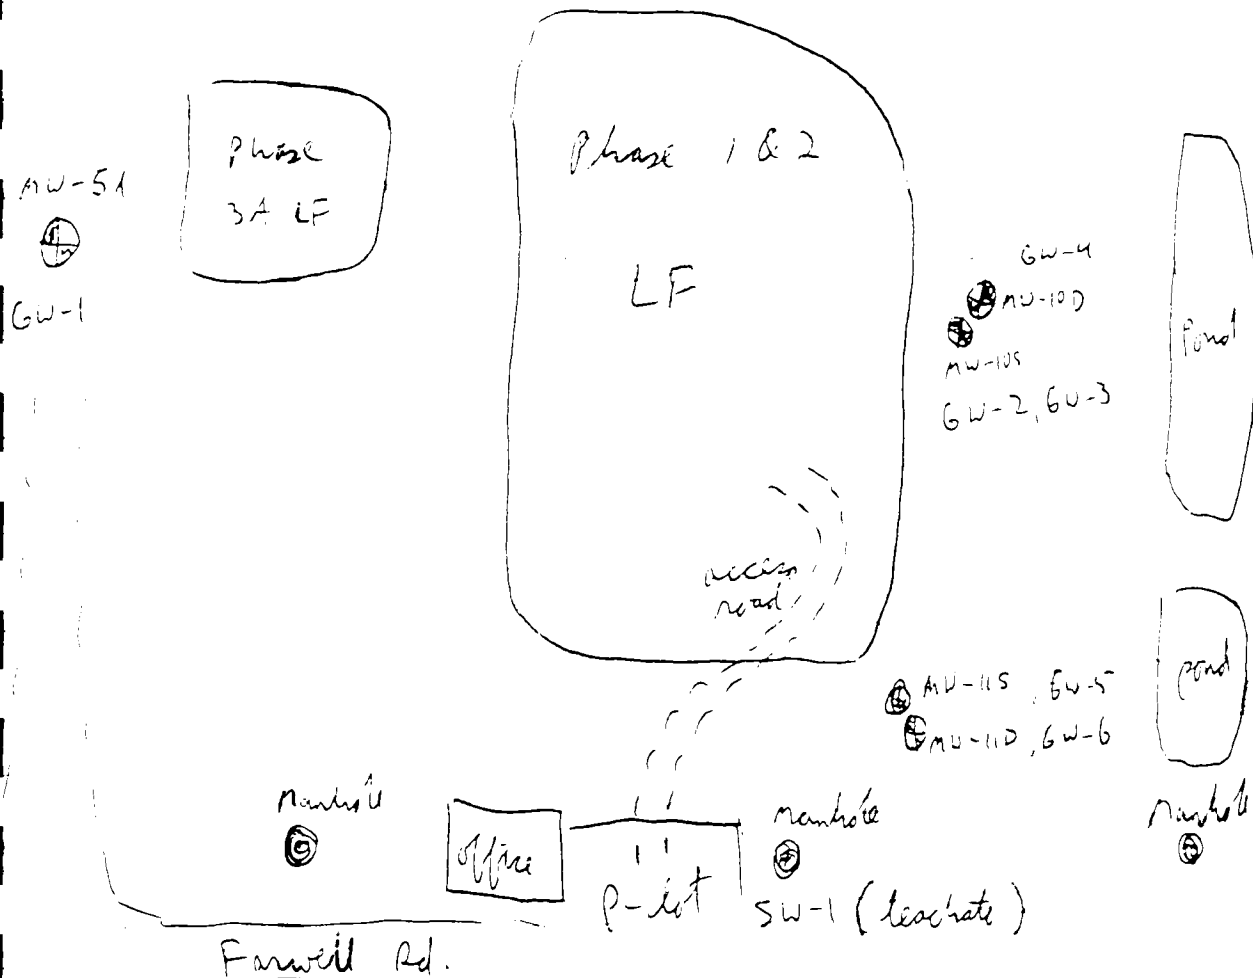 Phase
3A LF
Phase 1 & 2
LF
MW-5A
GW-1
GW-4
MW-10D
MW-10S
GW-2, GW-3
Pond
access
road
MW-11S, GW-5
MW-11D, GW-6
pond
Manhole
office
P-lot
Manhole
SW-1 (leachate)
Manhole
Farwell Rd.